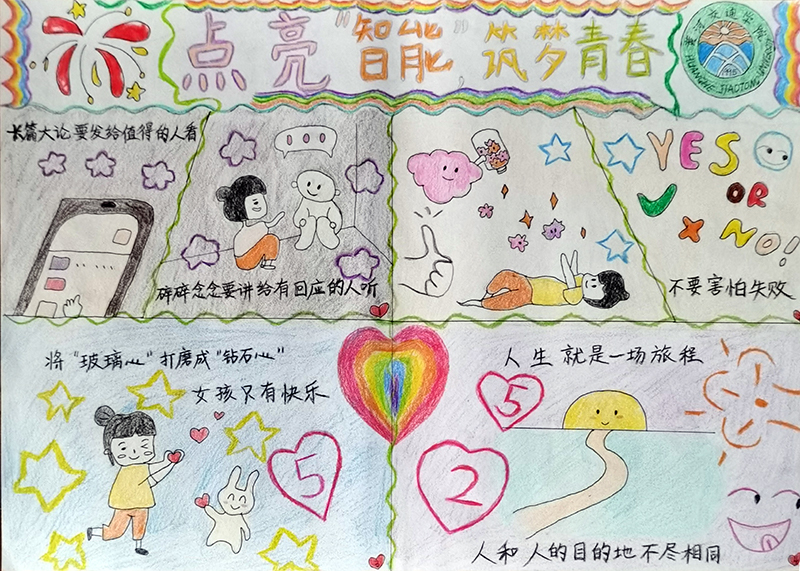 点亮"智能",筑梦青春
黄河交通学院
HUANGHE JIAOTONG
长篇大论要发给值得的人看
碎碎念念要讲给有回应的人听
YES
OR
NO!
不要害怕失败
将"玻璃心"打磨成"钻石心"
女孩只有快乐
5
人生就是一场旅程
5
2
人和人的目的地不尽相同